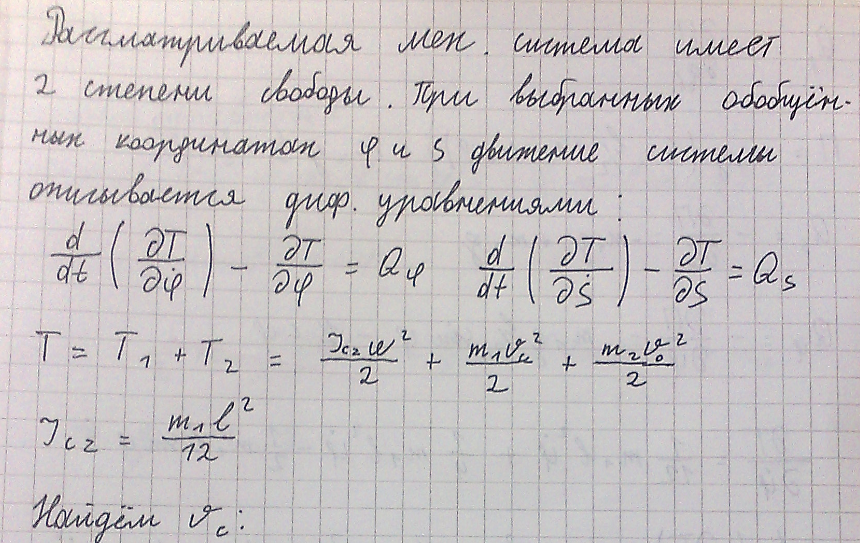 Рассматриваемая мех. система имеет
2 степени свободы. При выбранных обобщён-
ных координатах φ и s движение системы
описывается диф. уравнениями:
d/dt (∂T/∂φ̇) - ∂T/∂φ = Qφ d/dt (∂T/∂ṡ) - ∂T/∂s = Qs
T = T₁ + T₂ = Jcz ω²/2 + m₁ϑc²/2 + m₂ϑ₀²/2
Jcz = m₁l²/12
Найдём ϑc: